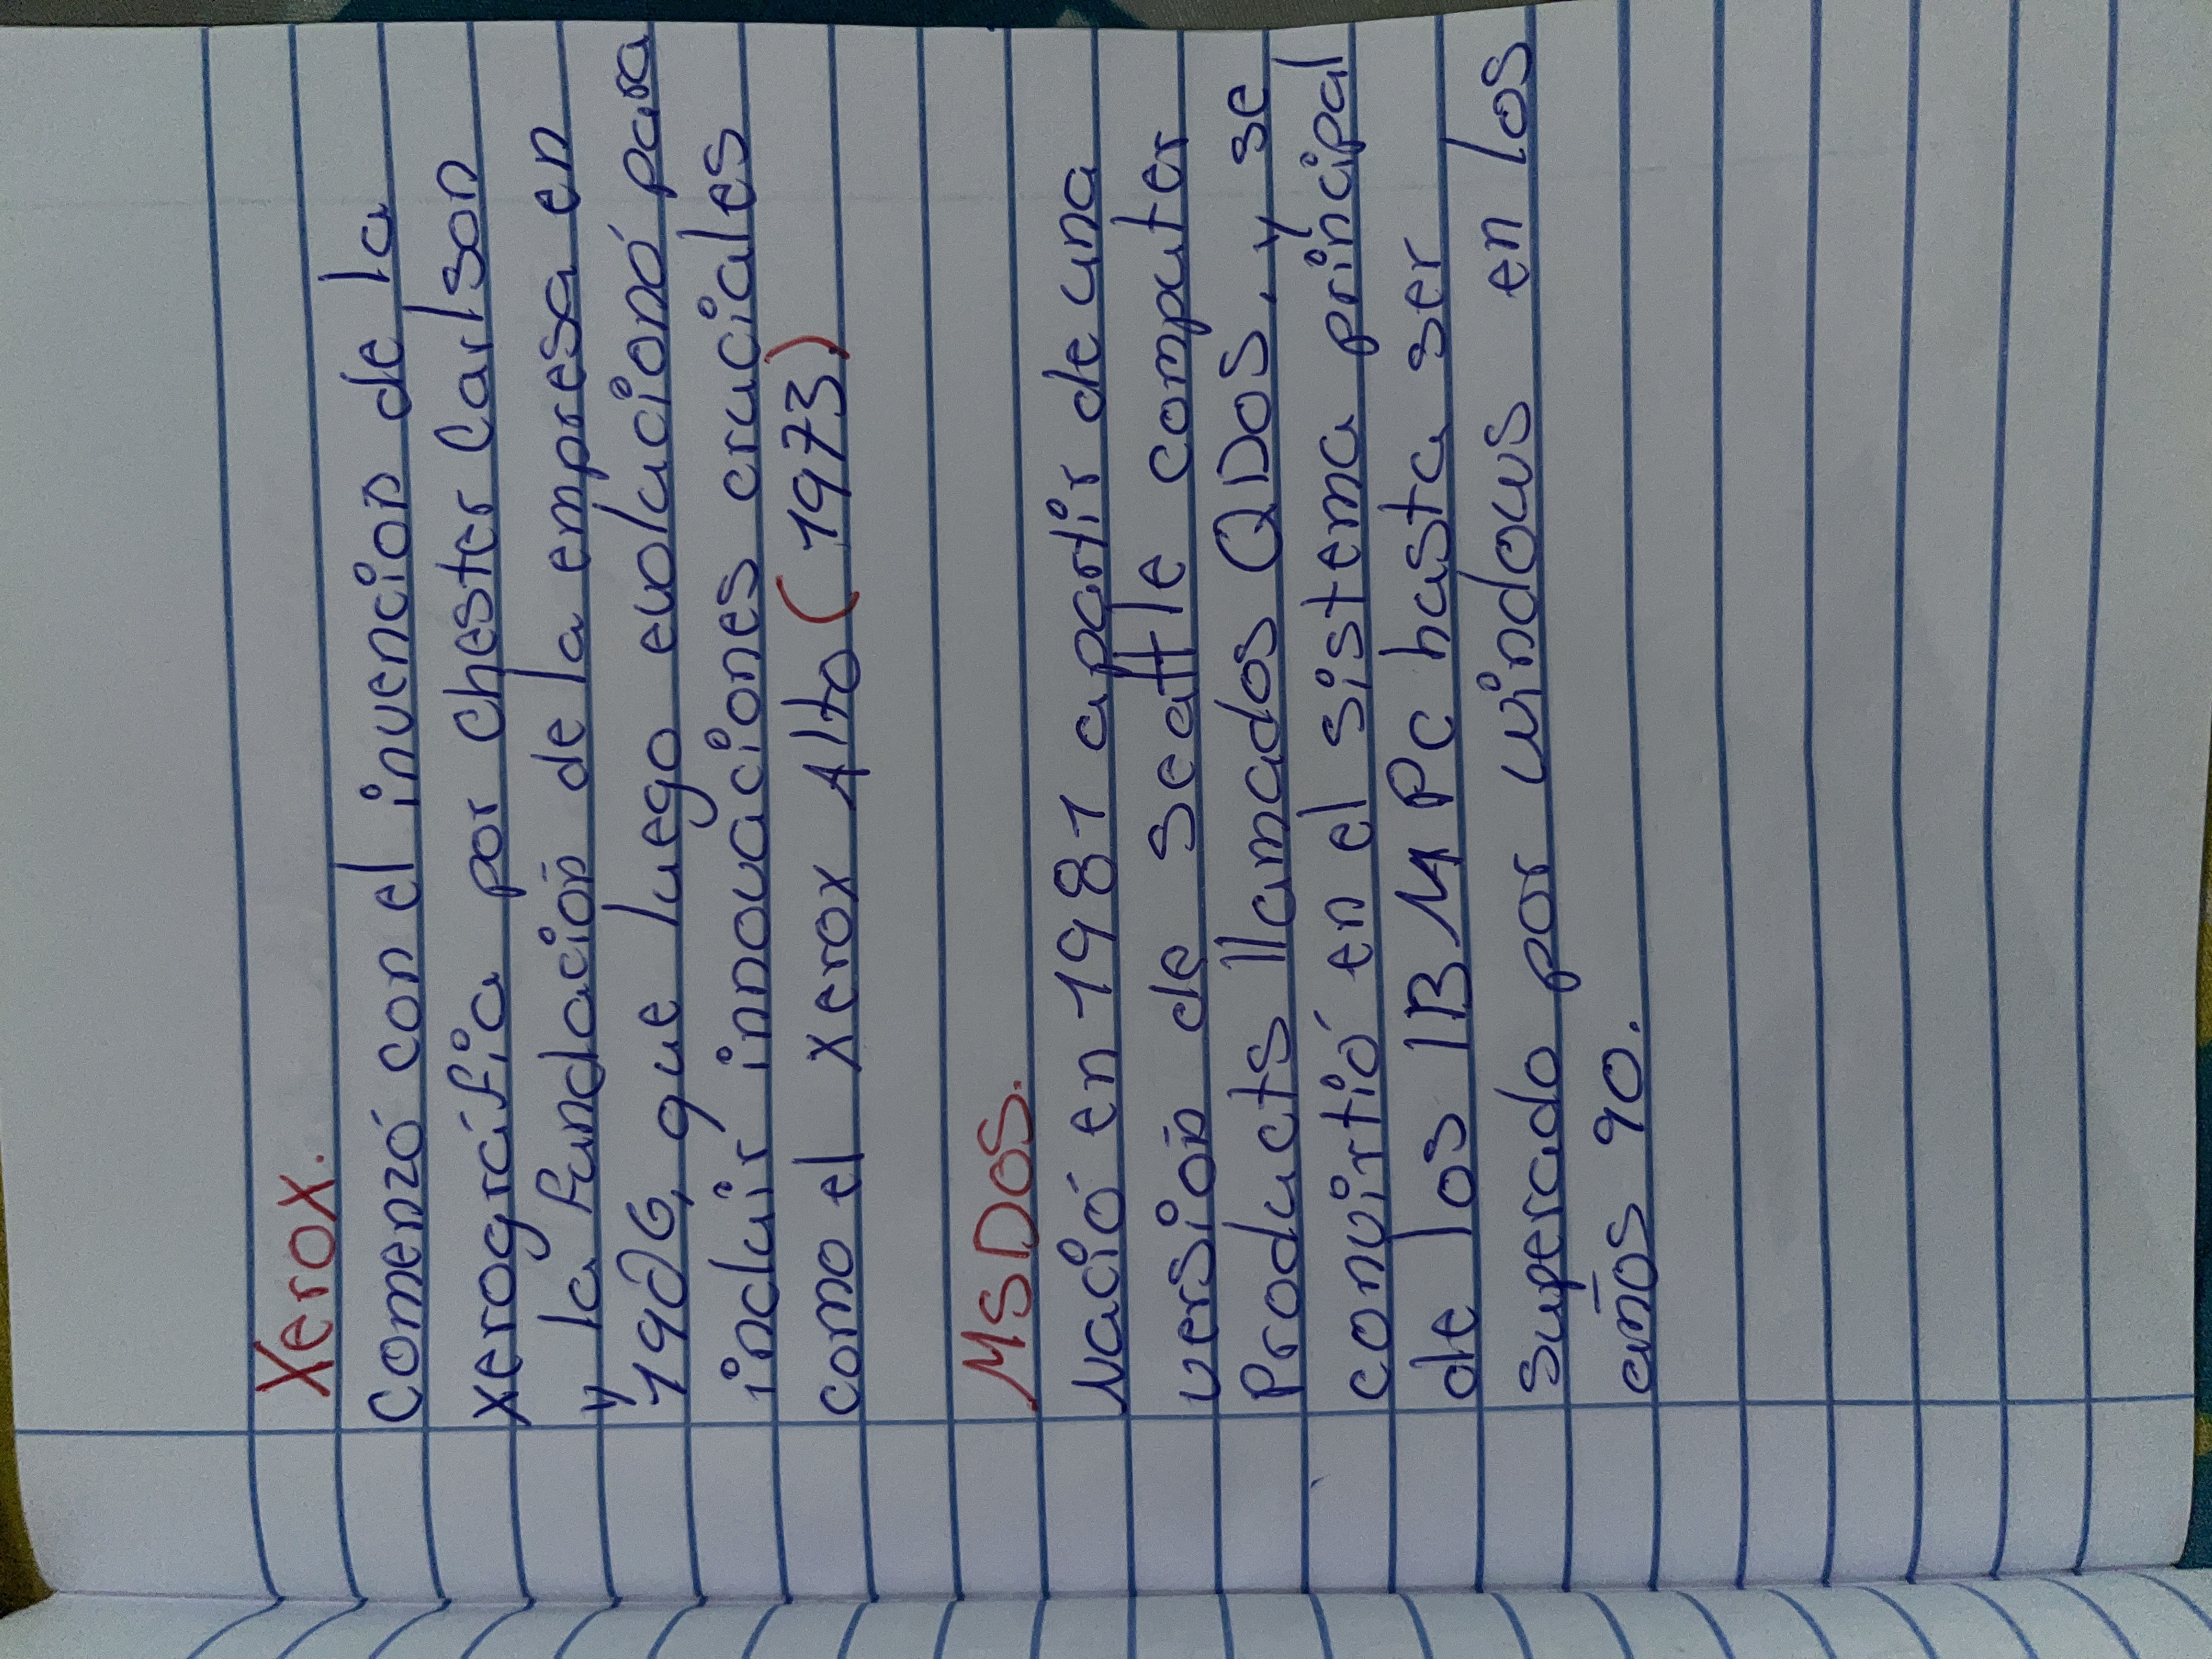 Xerox.
Comenzó con el invención de la
xerográfia por chester Carlson
y la fundación de la empresa en
1906, que luego evolucionó para
incluir innovaciones cruciales
como el xerox Alto (1973)
MSDOS.
Nació en 1981 apartir de una
versión de seattle computer
Products llamados QDOS, y se
convirtió en el sistema principal
de los IBM PC hasta ser
superado por windows en los
años 90.